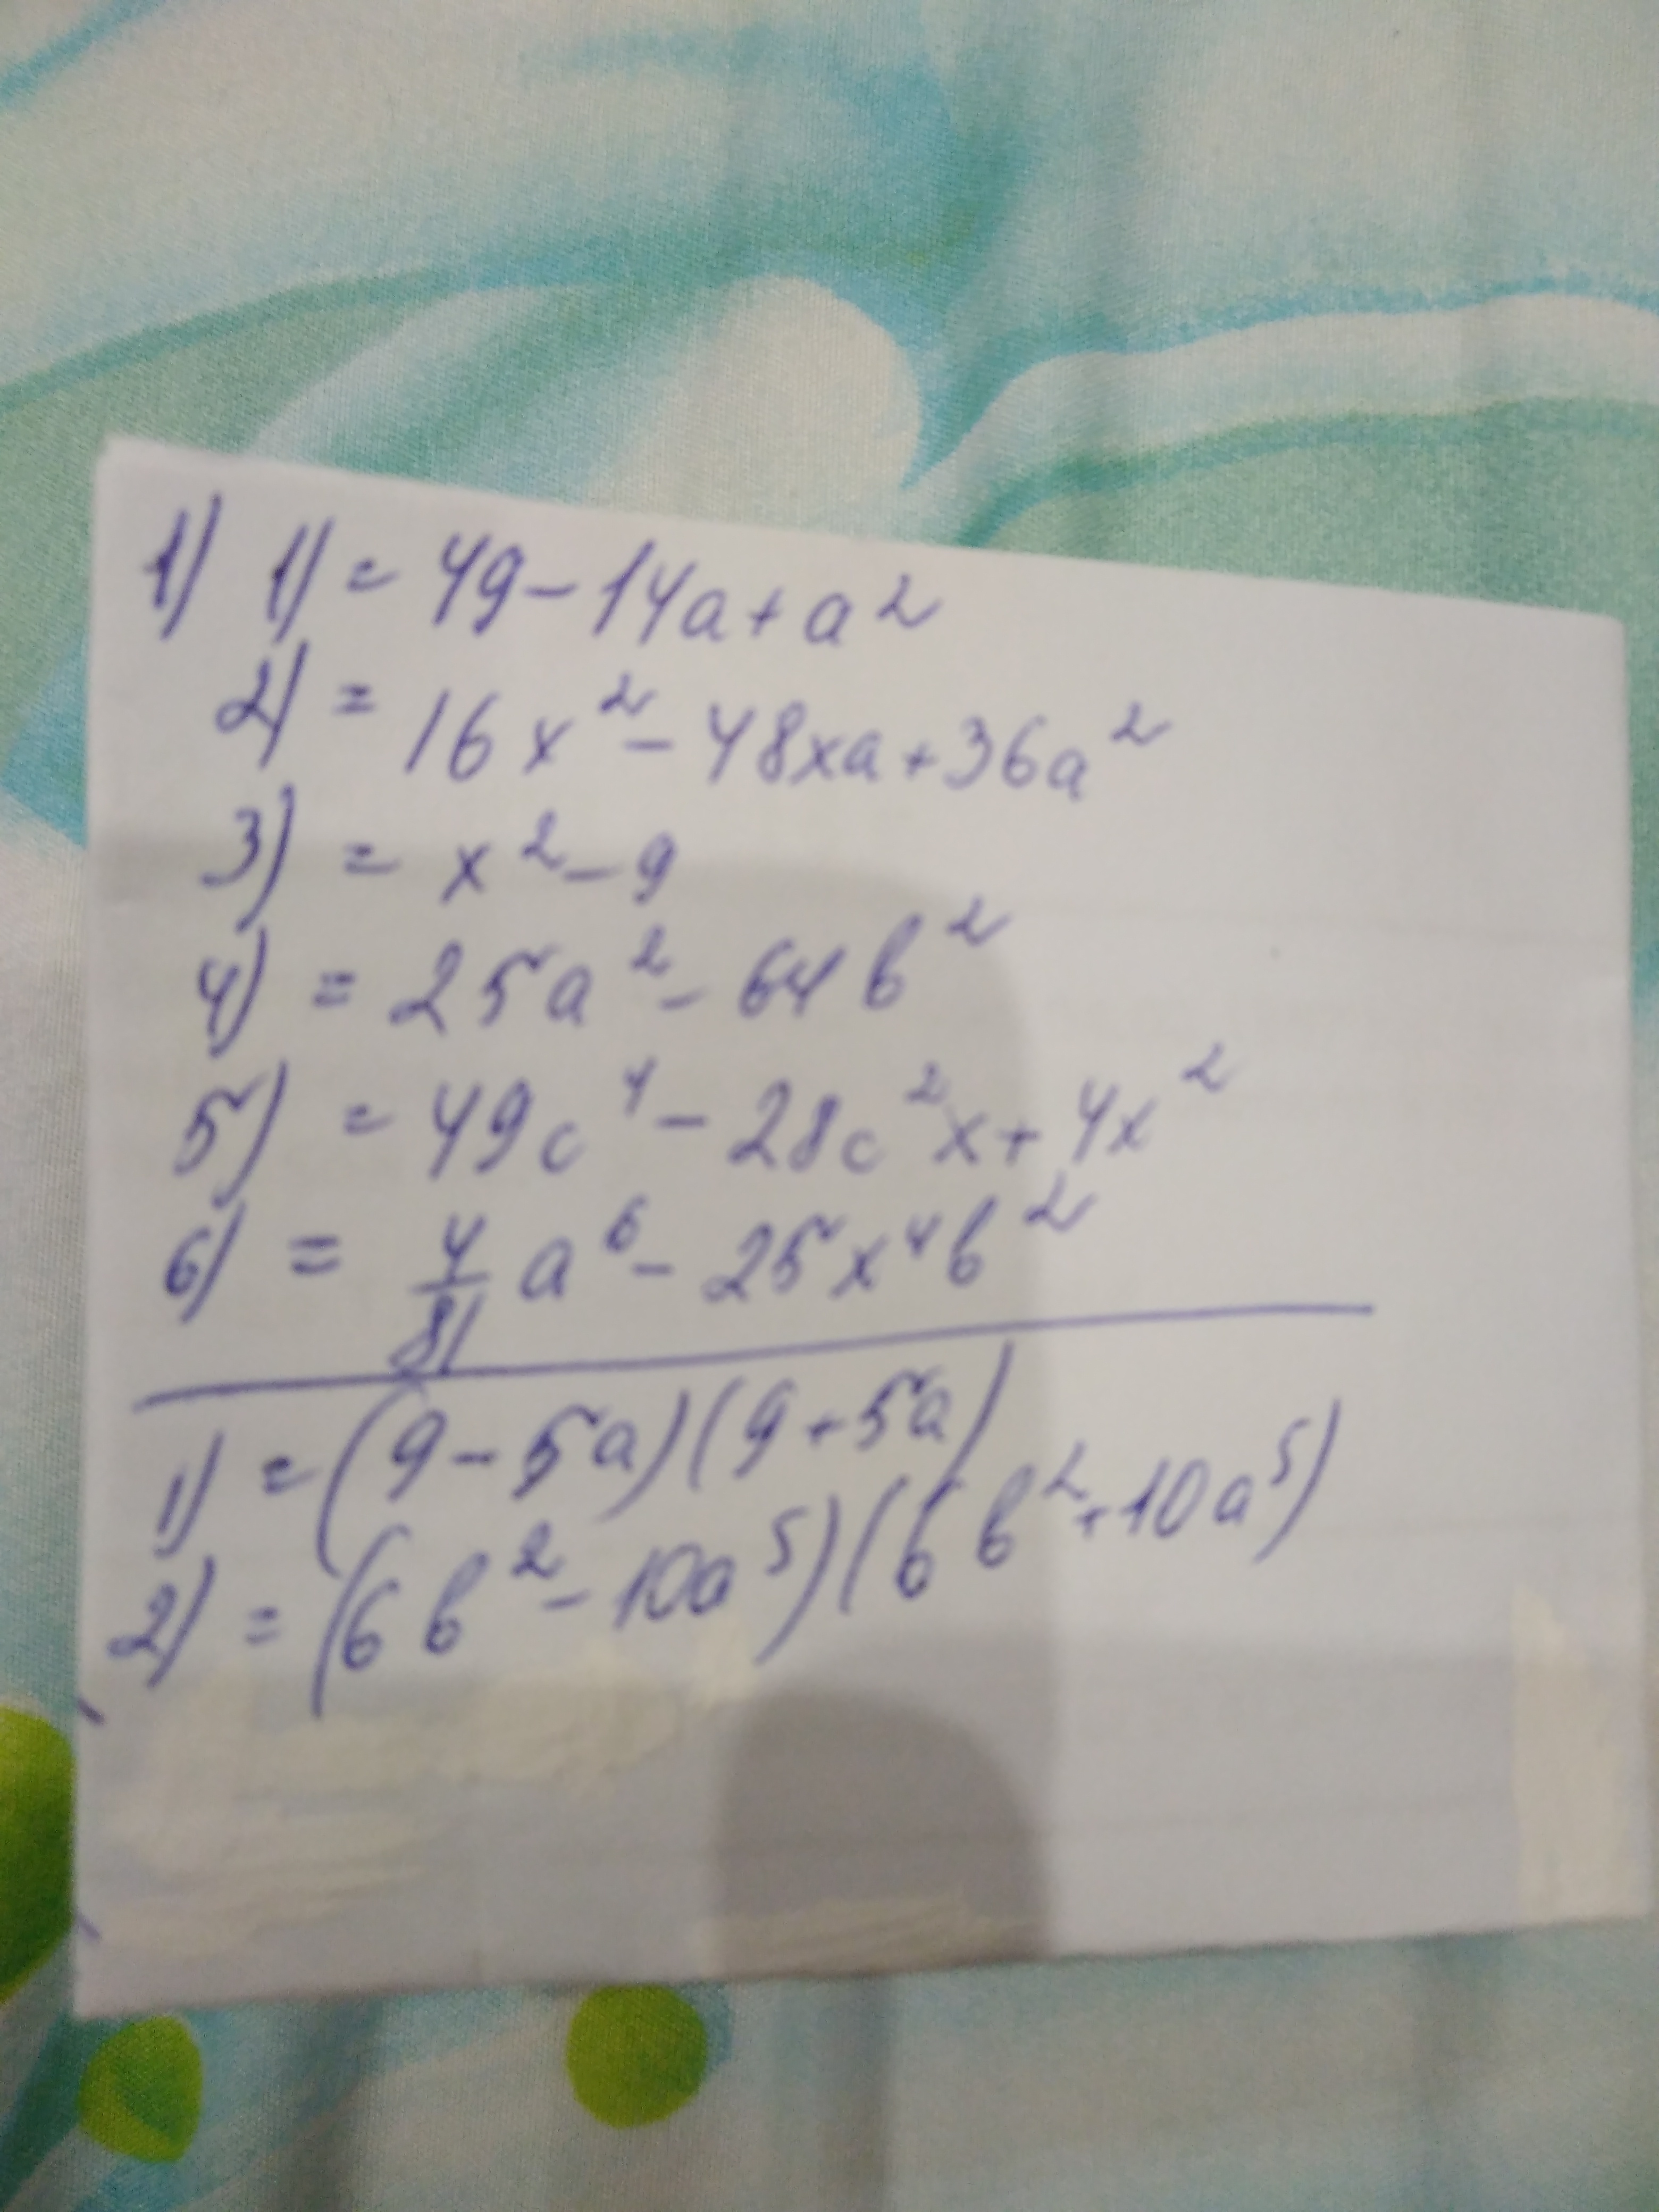 1) 1) = 49 - 14a + a²
2) = 16x² - 48xa + 36a²
3) = x² - 9
4) = 25a² - 64b²
5) = 49c⁴ - 28c²x + 4x²
6) = 4/81 a⁶ - 25x⁴b²
1) = (9 - 5a)(9 + 5a)
2) = (6b² - 10a⁵)(6b² + 10a⁵)